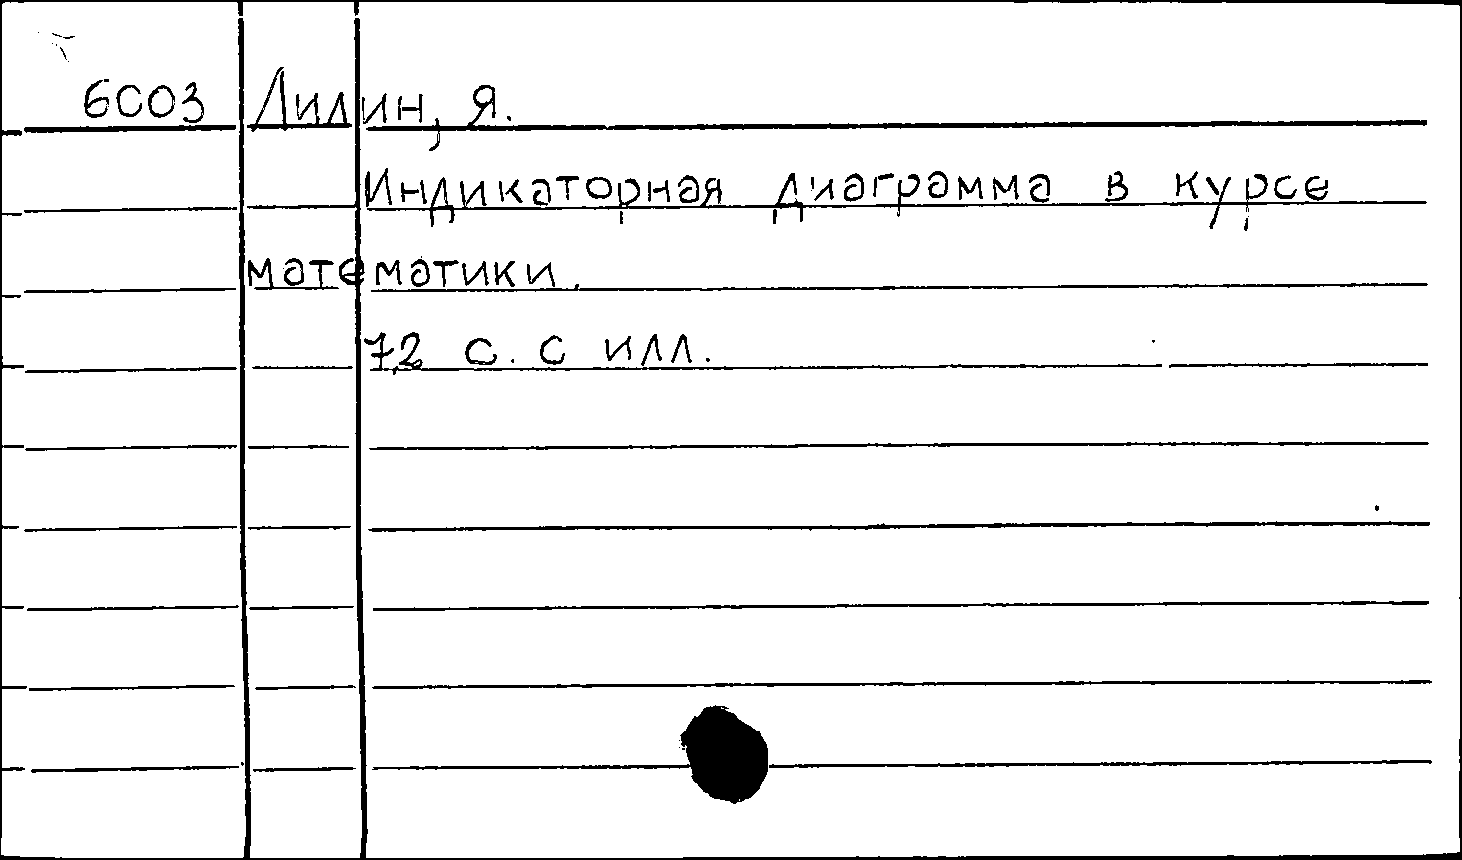 6С03 Лилин, Я.
Индикаторная диаграмма в курсе
математики.
72 с. с илл.